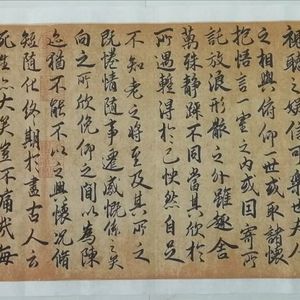 視聽之娛信可樂也夫人
之相與俯仰一世或取諸懷
抱悟言一室之內或因寄所
託放浪形骸之外雖趣舍
萬殊靜躁不同當其欣於
所遇輙得於己怏然自足
不知老之將至及其所之
既惓情隨事遷感慨係之矣
向之所欣俛仰之閒以為陳
迹猶不能不以之興懷況脩
短隨化終期於盡古人云
死生亦大矣豈不痛哉每